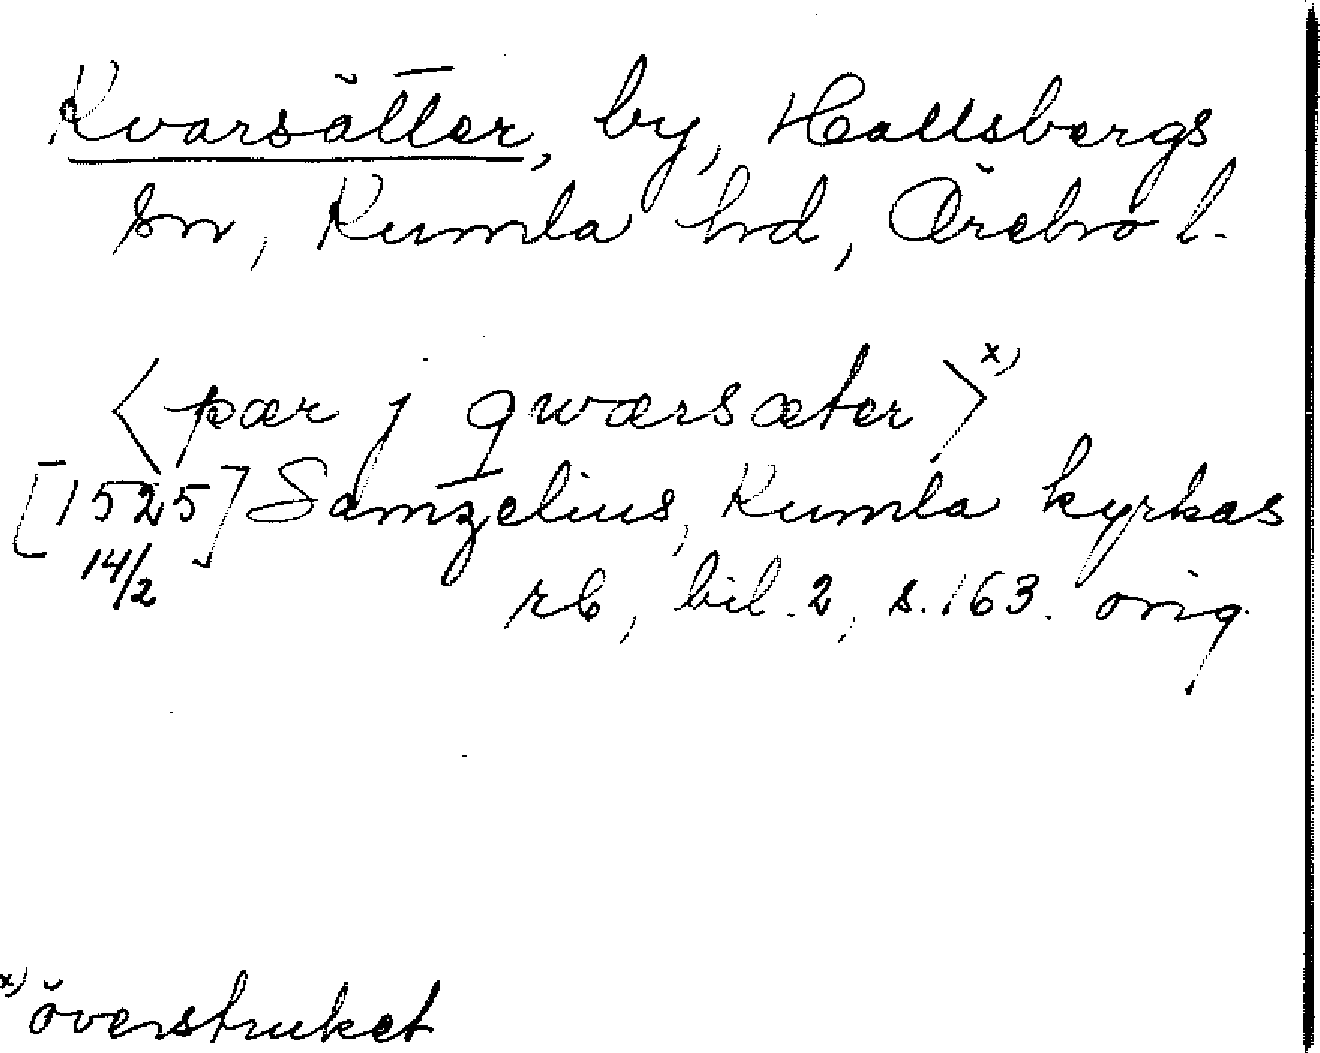 Kvarsätter, by, Hallsbergs
sn, Kumla hd, Örebro l.
<pær j qwærsæter> x)
[1525] Samzelius, Kumla kyrkas
14/2 rb, bil. 2, s. 163. orig.
x) överstruket